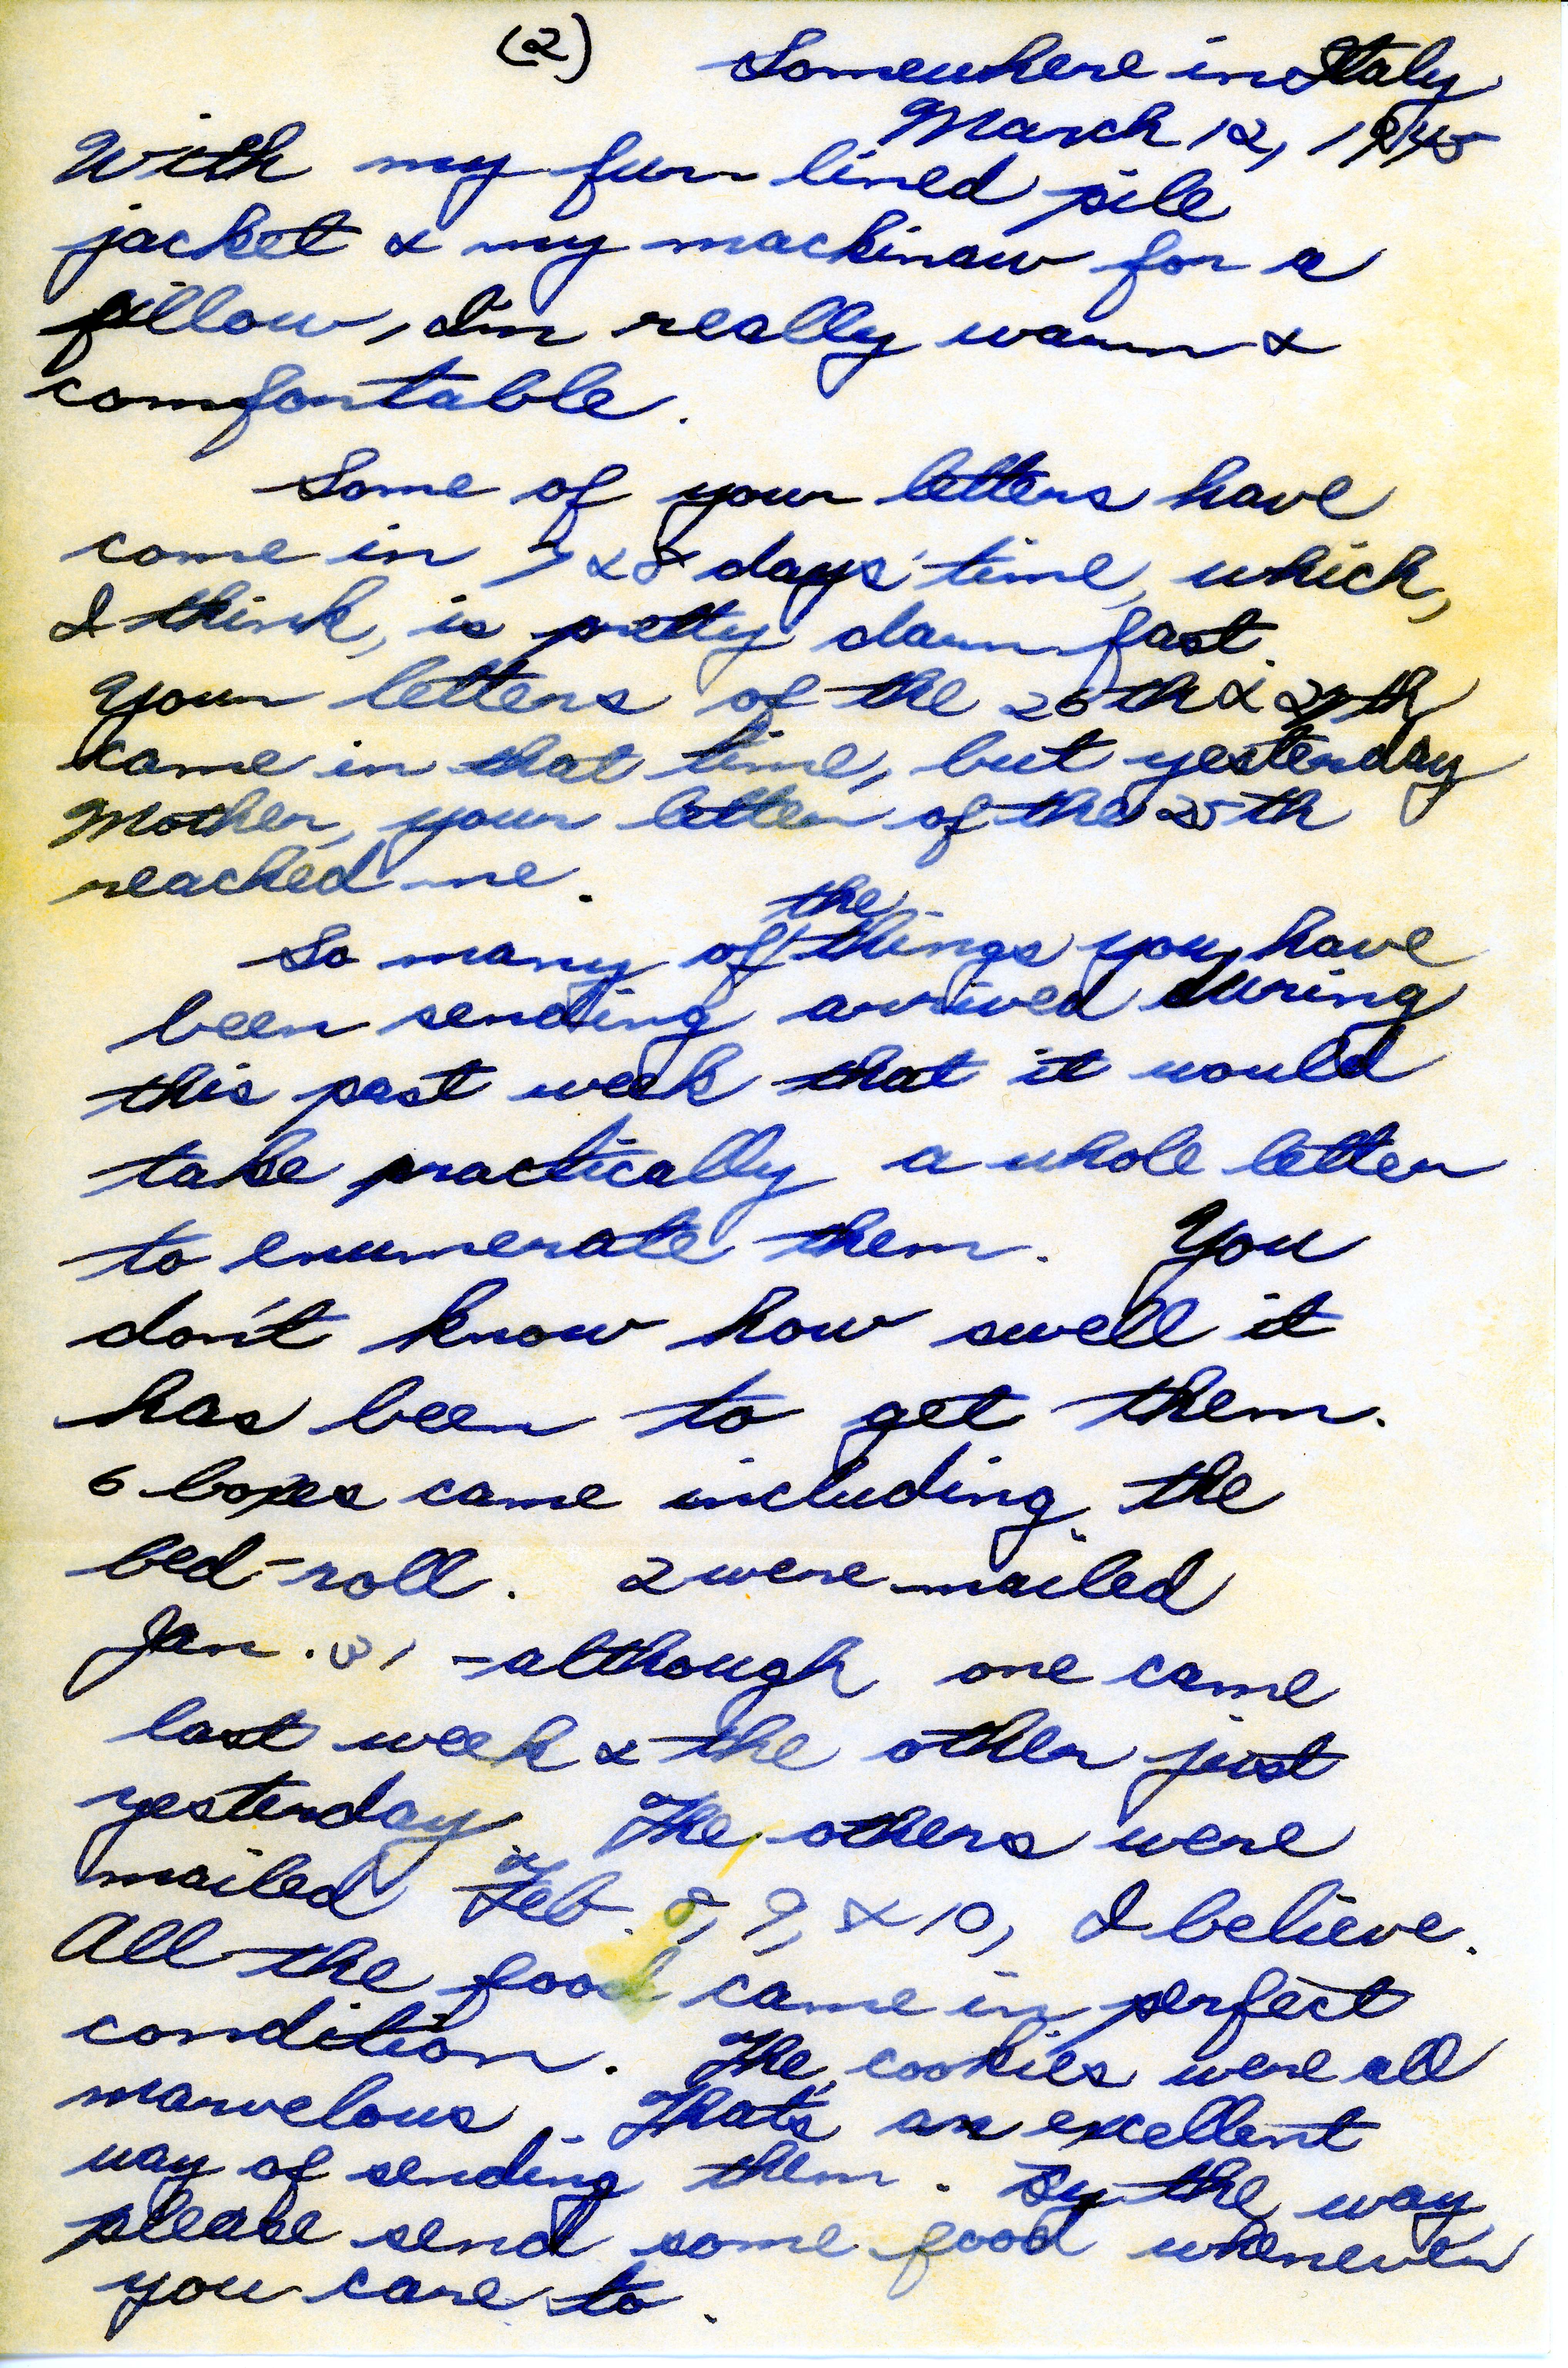 (2)
Somewhere in Italy
March 12, 1945
With my fur lined pile
jacket & my mackinaw for a
pillow, I'm really warm &
comfortable.
Some of your letters have
come in 7 & 8 days' time, which,
I think, is pretty damn fast.
Your letters of the 26th & 27th
came in that time, but yesterday
Mother, your letter of the 25th
reached me.
the
So many of things you have
been sending arrived during
this past week that it would
take practically a whole letter
to enumerate them. You
don't know how swell it
has been to get them.
6 boxes came including the
bed-roll. 2 were mailed
Jan. 31 - although one came
last week & the other just
yesterday. The others were
mailed Feb. 8, 9, & 10, I believe.
All the food came in perfect
condition. The cookies were all
marvelous. That's an excellent
way of sending them. By the way
please send some food whenever
you care to.